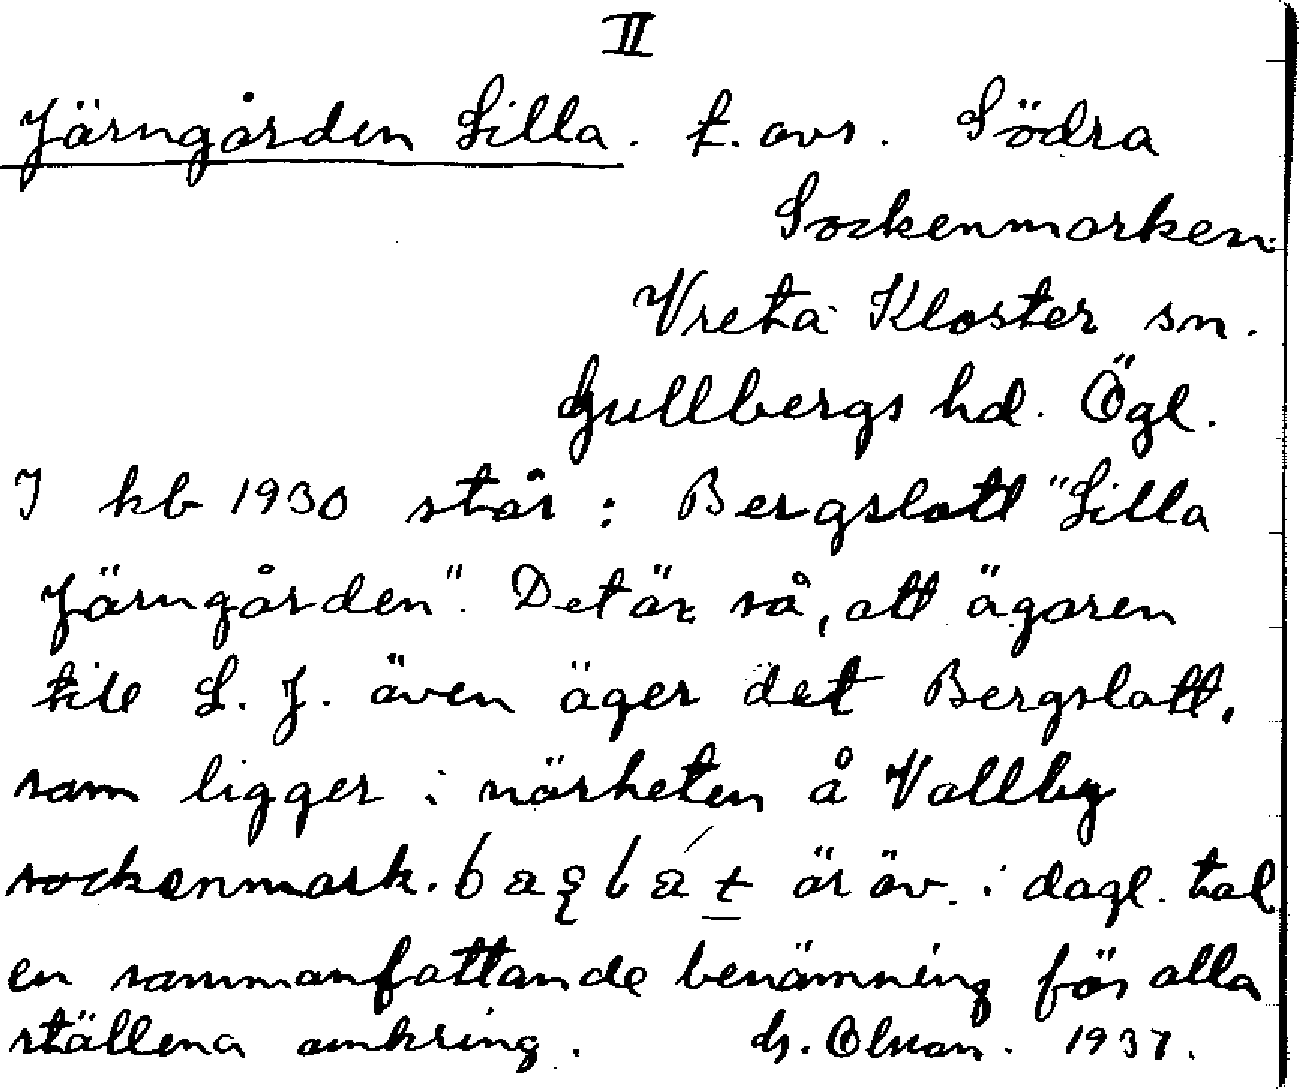 II
Järngården Lilla. f. avs. Södra
Sockenmarken
Vreta Kloster sn.
Gullbergs hd. Ögl.
I kb 1930 står: Bergslott "Lilla
Järngården". Det är så, att ägaren
till L. J. även äger det Bergslott,
som ligger i närheten å Vallby
sockenmark. är äv. i dagl. tal
en sammanfattande benämning för alla
ställena omkring. G. Olson. 1937.